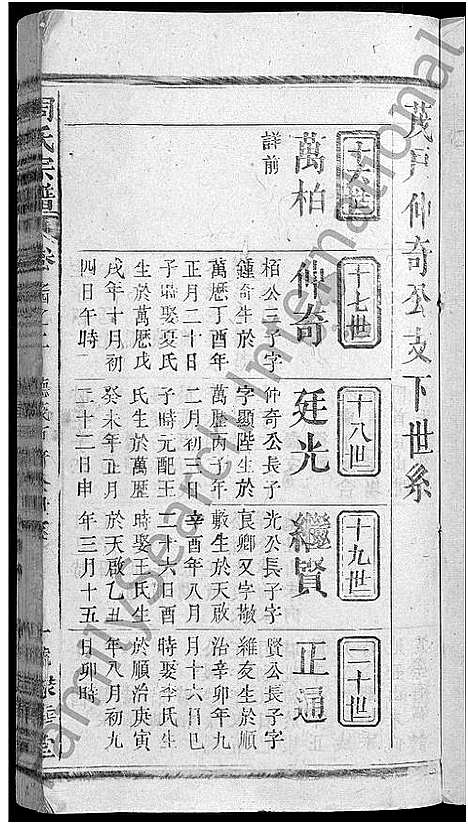 茂戶仲奇公支下世系
十六世
萬柏
詳前
十七世
仲奇
栢公三子字
鍾奇生於
萬厯丁酉年
正月二十日
子時娶夏氏
生於萬歷戊
戌年十月初
四日午時
十八世
廷光
仲奇公長子
字顯陛生於
萬厯丙子年
二月初三日
子時元配王
氏生於萬歷
癸未年正月
二十二日申
十九世
繼賢
光公長子字
良卿又字敬
數生於天啟
辛酉年八月
二十六日酉
時娶王氏生
於天啟乙丑
年三月十五
二十世
正通
賢公長子字
維友生於順
治辛卯年九
月十六日巳
時娶李氏生
於順治庚寅
年八月初九
日卯時
周氏宗譜
FamilySearch International